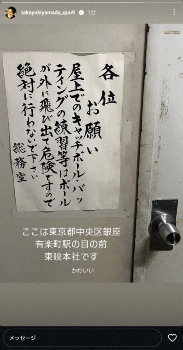 takayukiyamada_cpaf9 1分
各位
お願い
屋上でのキャッチボール・バッ
ティングの練習等はボール
が外に飛び出て危険ですので
絶対に行わないで下さい
総務室
ここは東京都中央区銀座
有楽町駅の目の前
東映本社です
かわいい
メッセージ